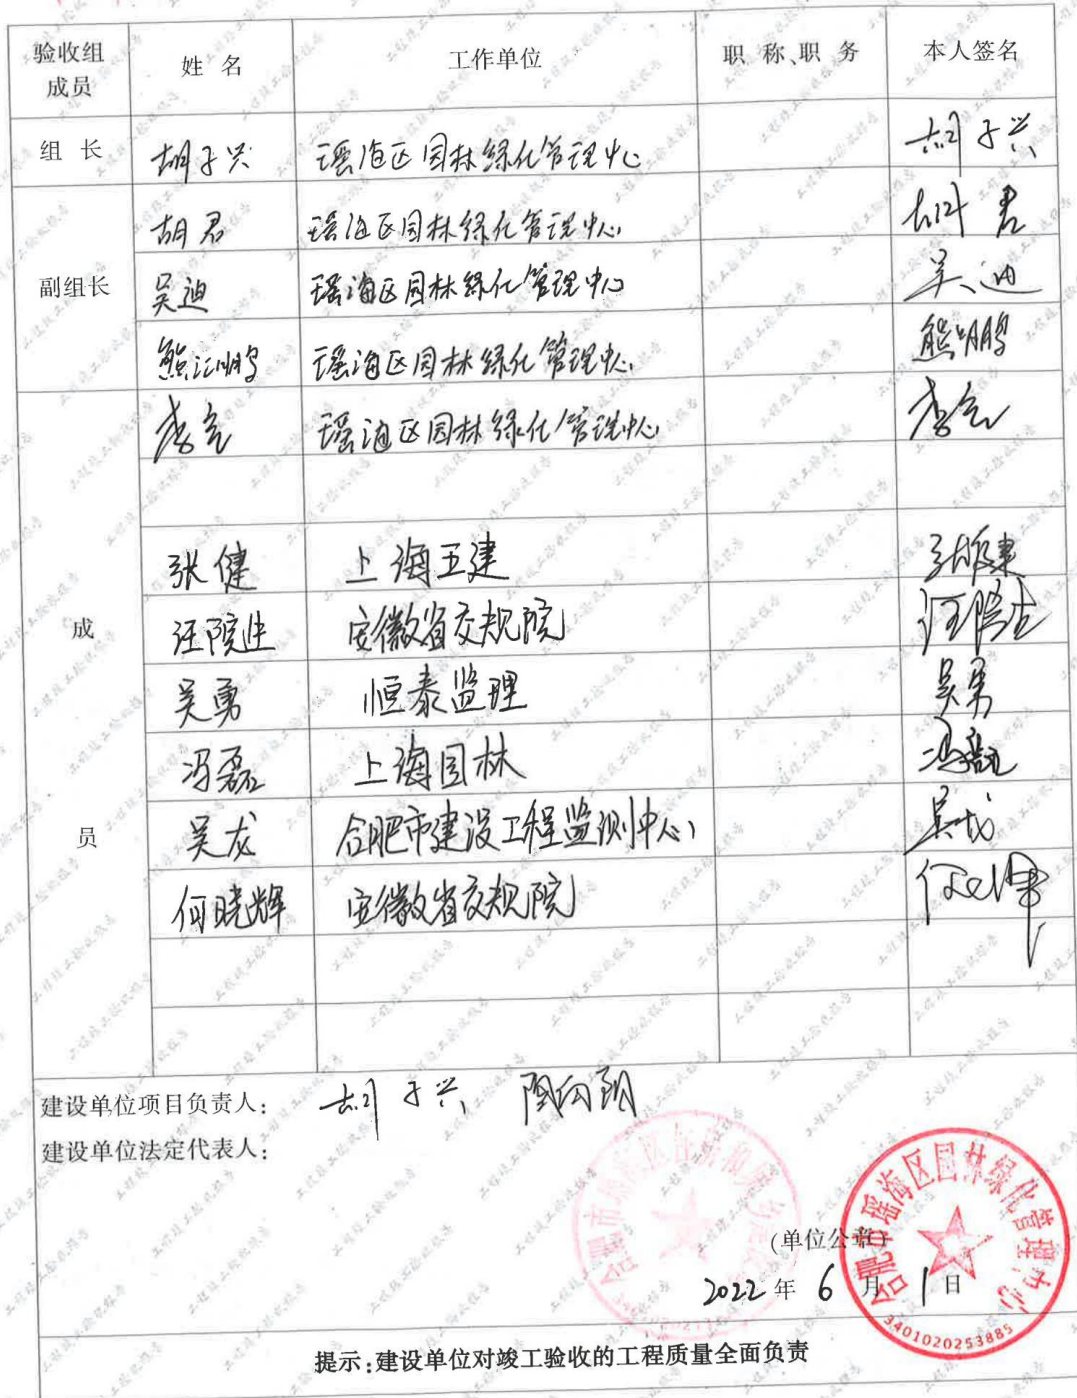 验收组成员 姓 名 工作单位 职 称、职 务 本人签名
组 长 胡子兴 瑶海区园林绿化管理中心 胡子兴
副组长 胡君 瑶海区园林绿化管理中心 胡君
吴迪 瑶海区园林绿化管理中心 吴迪
熊江鹏 瑶海区园林绿化管理中心
瑶海区园林绿化管理中心
成员 张健 上海五建 张健
汪院生 安徽省交规院 汪院生
吴勇 恒泰监理 吴勇
冯磊 上海园林 冯磊
吴龙 合肥市建设工程监测中心 吴龙
何晓辉 安徽省交规院
建设单位项目负责人: 胡子兴
建设单位法定代表人:
(单位公章)
2022 年 6 月 1 日
合肥市瑶海区园林绿化管理中心
3401020253885
提示:建设单位对竣工验收的工程质量全面负责
工程竣工验收报告